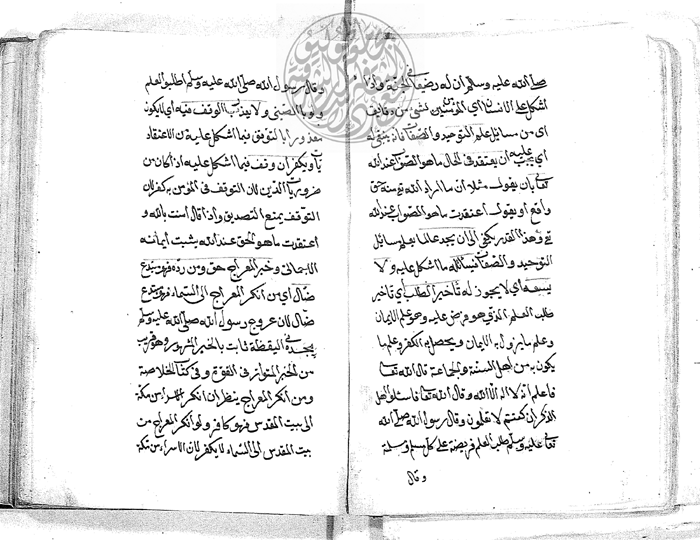 صلى الله عليه وسلم ان له رضيعا في الجنة واذا
اشكل على الانسان اى المؤمنين شئ من دقايق
اى من مسائل علم التوحيد والصفات فانه ينبغى له
اى يجب عليه ان يعتقد فى الحال ما هو الصواب عند الله
تعالى بان يقول مثلا ان ما اراد الله تع منه حق
واقع او يقول اعتقدت ما هو الصواب عند الله
تع وهذا القدر يكفى الى ان يجد عالما يعلم مسائل
التوحيد والصفات فيسأله ما اشكل عليه ولا
يسعه اى لا يجوز له تاخير الطلب اى تاخير
طلب العلم الذى هو فرض عليه وهو علم الايمان
وعلم ما يزول به الايمان ويحصل به الكفر وعلم ما
يكون به من اهل السنة والجماعة قال الله تعا
فاعلم انه لا اله الا الله وقال الله تعا فاسئلوا اهل
الذكر ان كنتم لا تعلمون وقال رسول الله صلى الله
تعا عليه وسلم طلب العلم فريضة على كل مسلم ومسلمة
وقال
وقال رسول الله صلى الله عليه وسلم اطلبوا العلم
ولو بالصين ولا يعذر بالوقف فيه اى لا يكون
معذورا بالتوقف فيما اشكل عليه من الاعتقاد
يات ويكفر ان وقف فيما اشكل عليه اذا كان من
ضروريات الدين لان التوقف فى المؤمن به كفر لان
التوقف يمنع التصديق واذا قال امنت بالله و
اعتقدت ما هو الحق عند الله يثبت ايمانه
الاجمالى وخبر المعراج حق ومن رده فهو مبتدع
ضال اى من انكر المعراج الى السماء فهو مبتدع
ضال لان عروج رسول الله صلى الله عليه وسلم
بجسده فى اليقظة ثابت بالخبر المشهور وهو قريب
من الخبر المتواتر فى القوة وفى كتاب الخلاصة
ومن انكر المعراج ينظر ان انكر الاسراء من مكة
الى بيت المقدس فهو كافر ولو انكر المعراج من
بيت المقدس الى السماء لا يكفر لان الاسراء من مكة